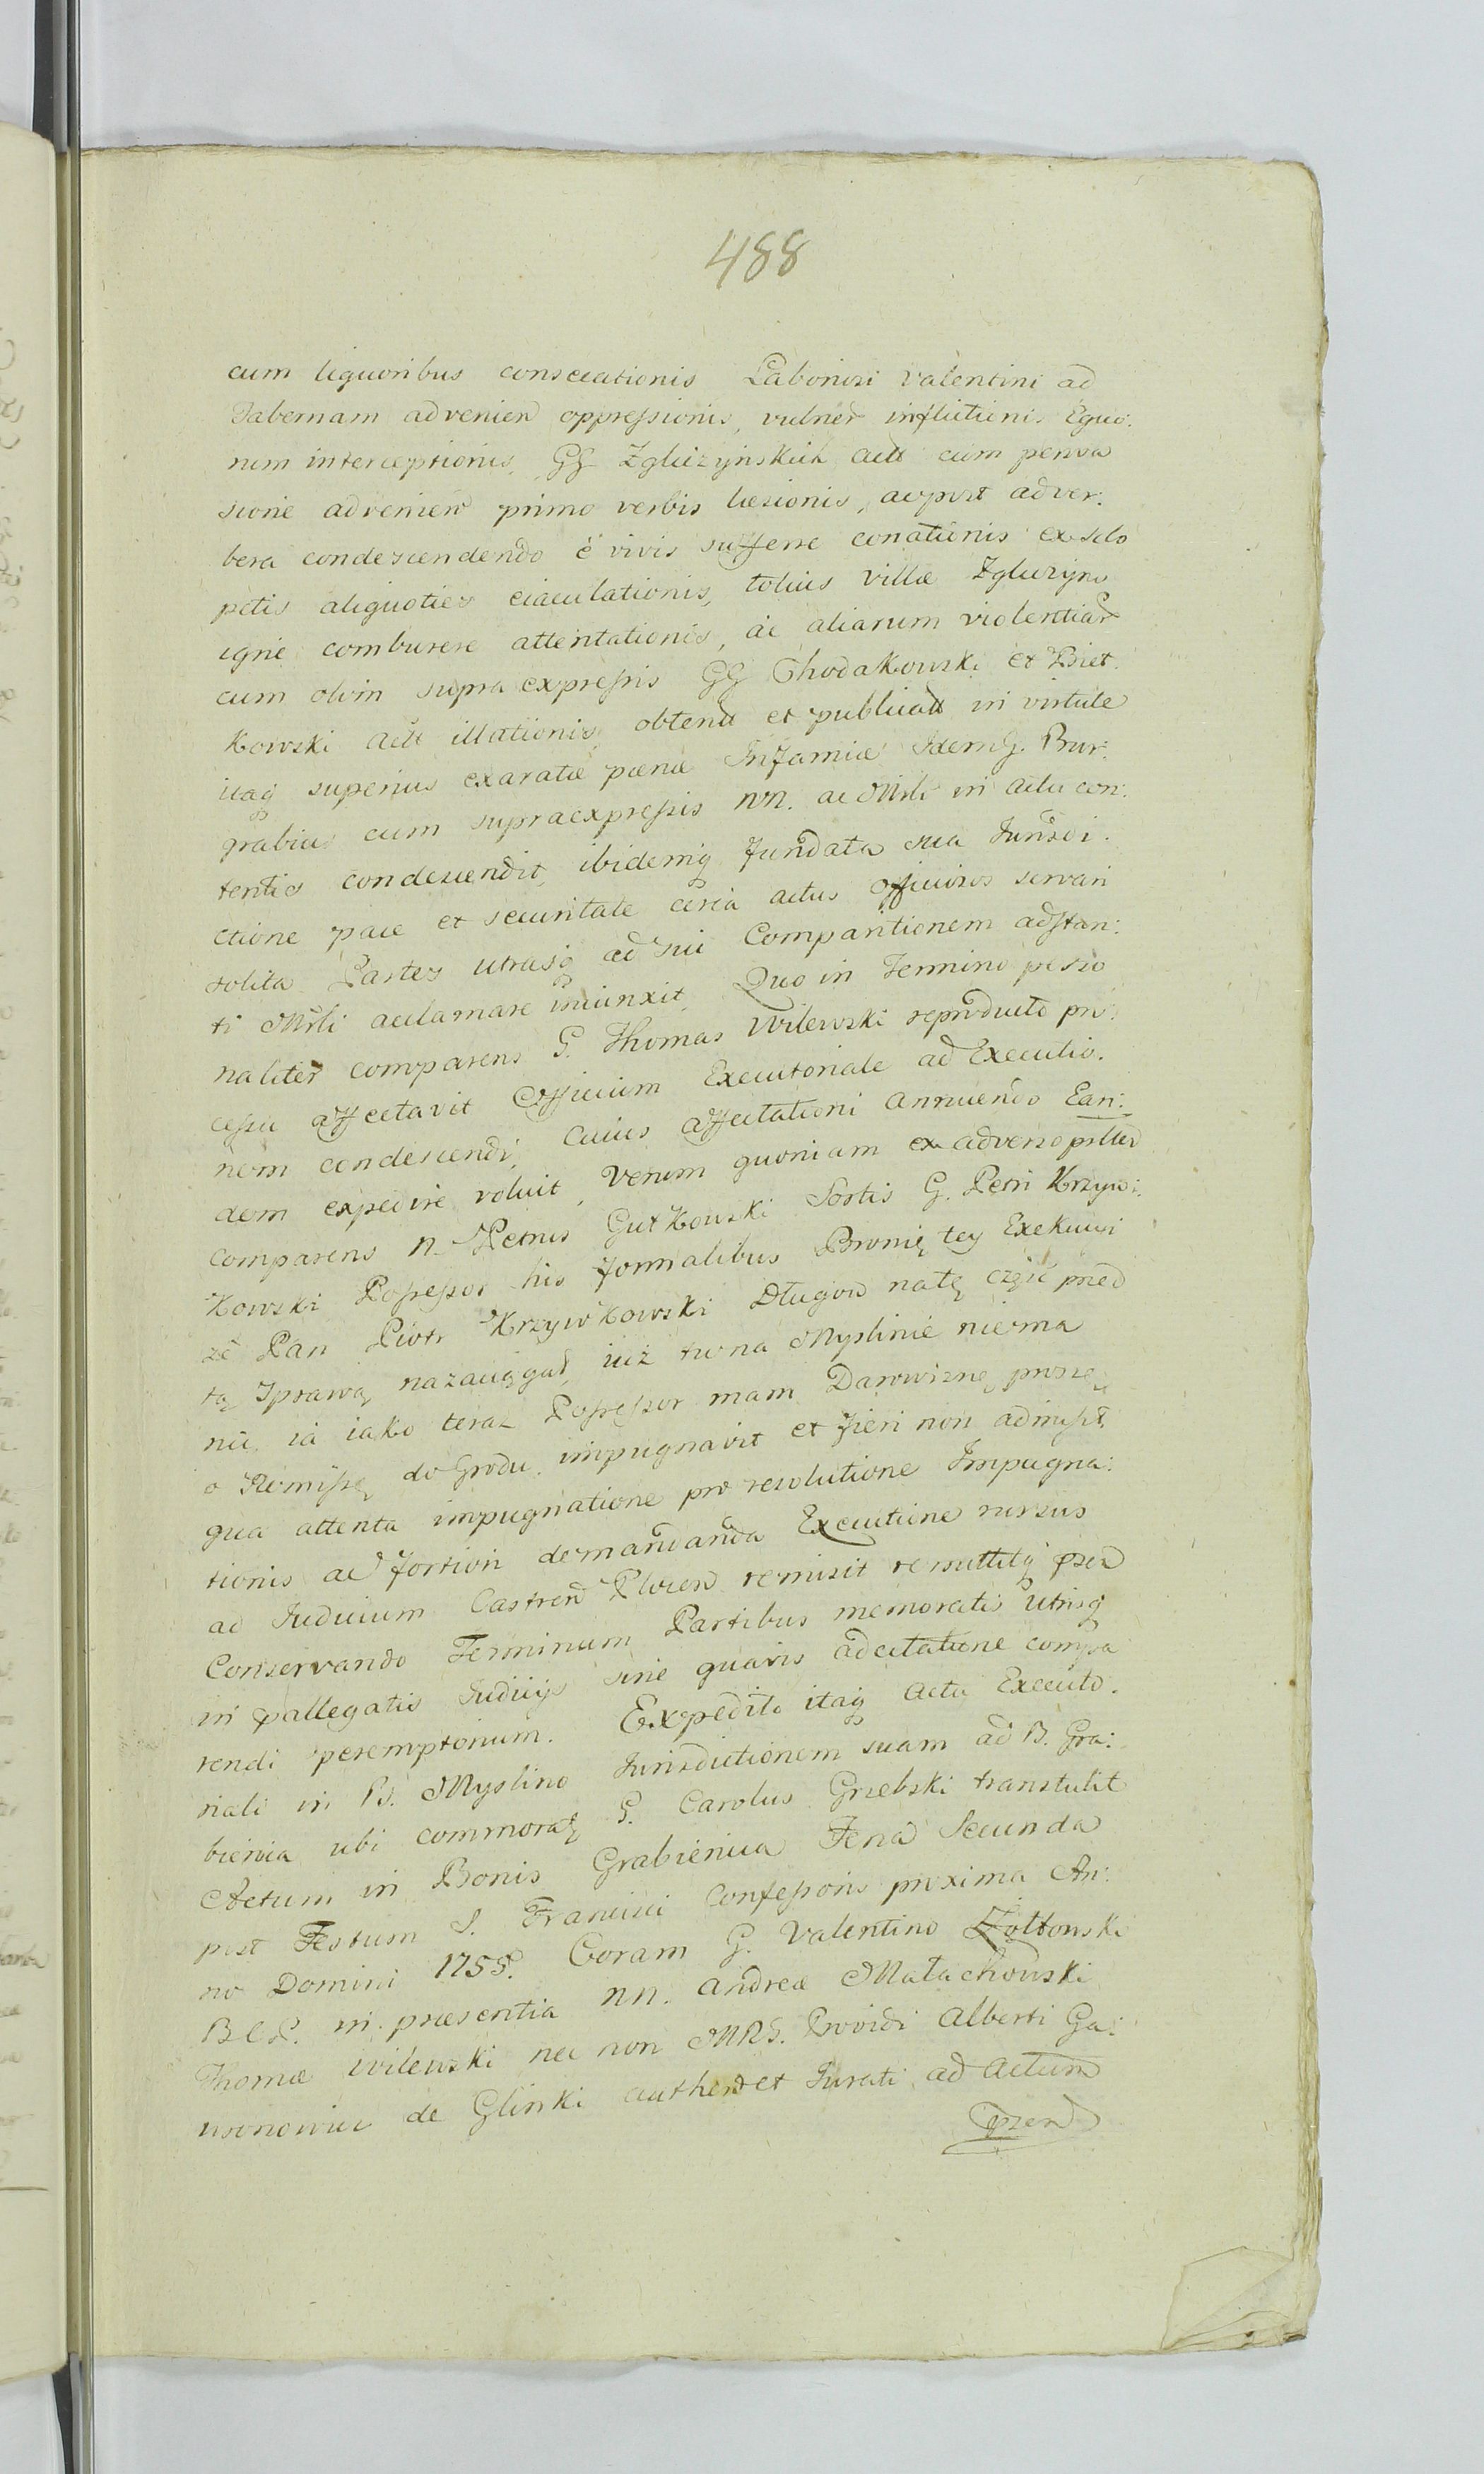 488
cum liquoribus consceationis Laboriosi Valentini ad
Tabernam advenien oppressionis, vulner inflictionis Equo:
rum interceptionis, GG Zgliczynskich act cum persva
sione advenien primo verbis læsionis, ac post adver:
bera condescendendo è vivis sufferre conationis ex sclo
petis aliquoties eiaculationis, totius villæ Zgliczyno
igne comburere attentationis, ac aliarum violentiar
cum olim supra expressis GG Chodakowski et Biet
kowski act illationis, obtent et publicat in virtute
itaq superius exaratæ pœnæ Infamiæ Idem G. Bur:
grabius cum supraexpressis NN. ac Mrli in actu con:
tentis condescendit, ibidemq fundata sua Jurisdi:
ctione pace et securitate circa actus officiosos servari
solita Partes utrasq ad sui Comparitionem adstan:
ti Mrli acclamare iniunxit, Quo in Termino perso
naliter comparens G. Thomas Wilewski reproducto pro:
cessu affectavit Officium Executoriale ad Executio:
nem condescendi, cuius affectationi annuendo Ean:
dem expedire voluit, Verum quoniam ex adverso pstter
comparens N. Petrus Gutkowski Sortis G. Petri Krzywi:
kowski Possessor his formalibus Bronię tey Exekucyi
że Pan Piotr Krzywkowski Długow natę część pred
tą Sprawą nazaciągał, iuż tu na Myslinie niema
nic ia iako teraz Possessor mam Darowiznę, proszę
o Remissę do Grodu, impugnavit et fieri non admisit,
qua attenta impugnatione pro resolutione Impugna:
tionis ac fortiori demandanda Executione rursus
ad Judicium Castren Plocen remisit remittitq prn
Conservando Terminum Partibus memoratis utrisq
in pallegatis Judicijs sine quavis adcitatione compa
rendi peremptorium. Expedito itaq Actu Executo:
riali in B. Myslino Jurisdictionem suam ad B. Gra:
bienica ubi commorat G. Carolus Grzebski transtulit
Actum in Bonis Grabienica Feria Secunda
post Festum S. Francisci Confessoris proxima An:
no Domini 1755. Coram G. Valentino Żołtowski
B C P. in præsentia NN. Andreæ Małachowski
Thomæ Wilewski nec non MRG. Providi Alberti Ga:
wronowicz de Glinki authen et Jurati ad Actum
pzen